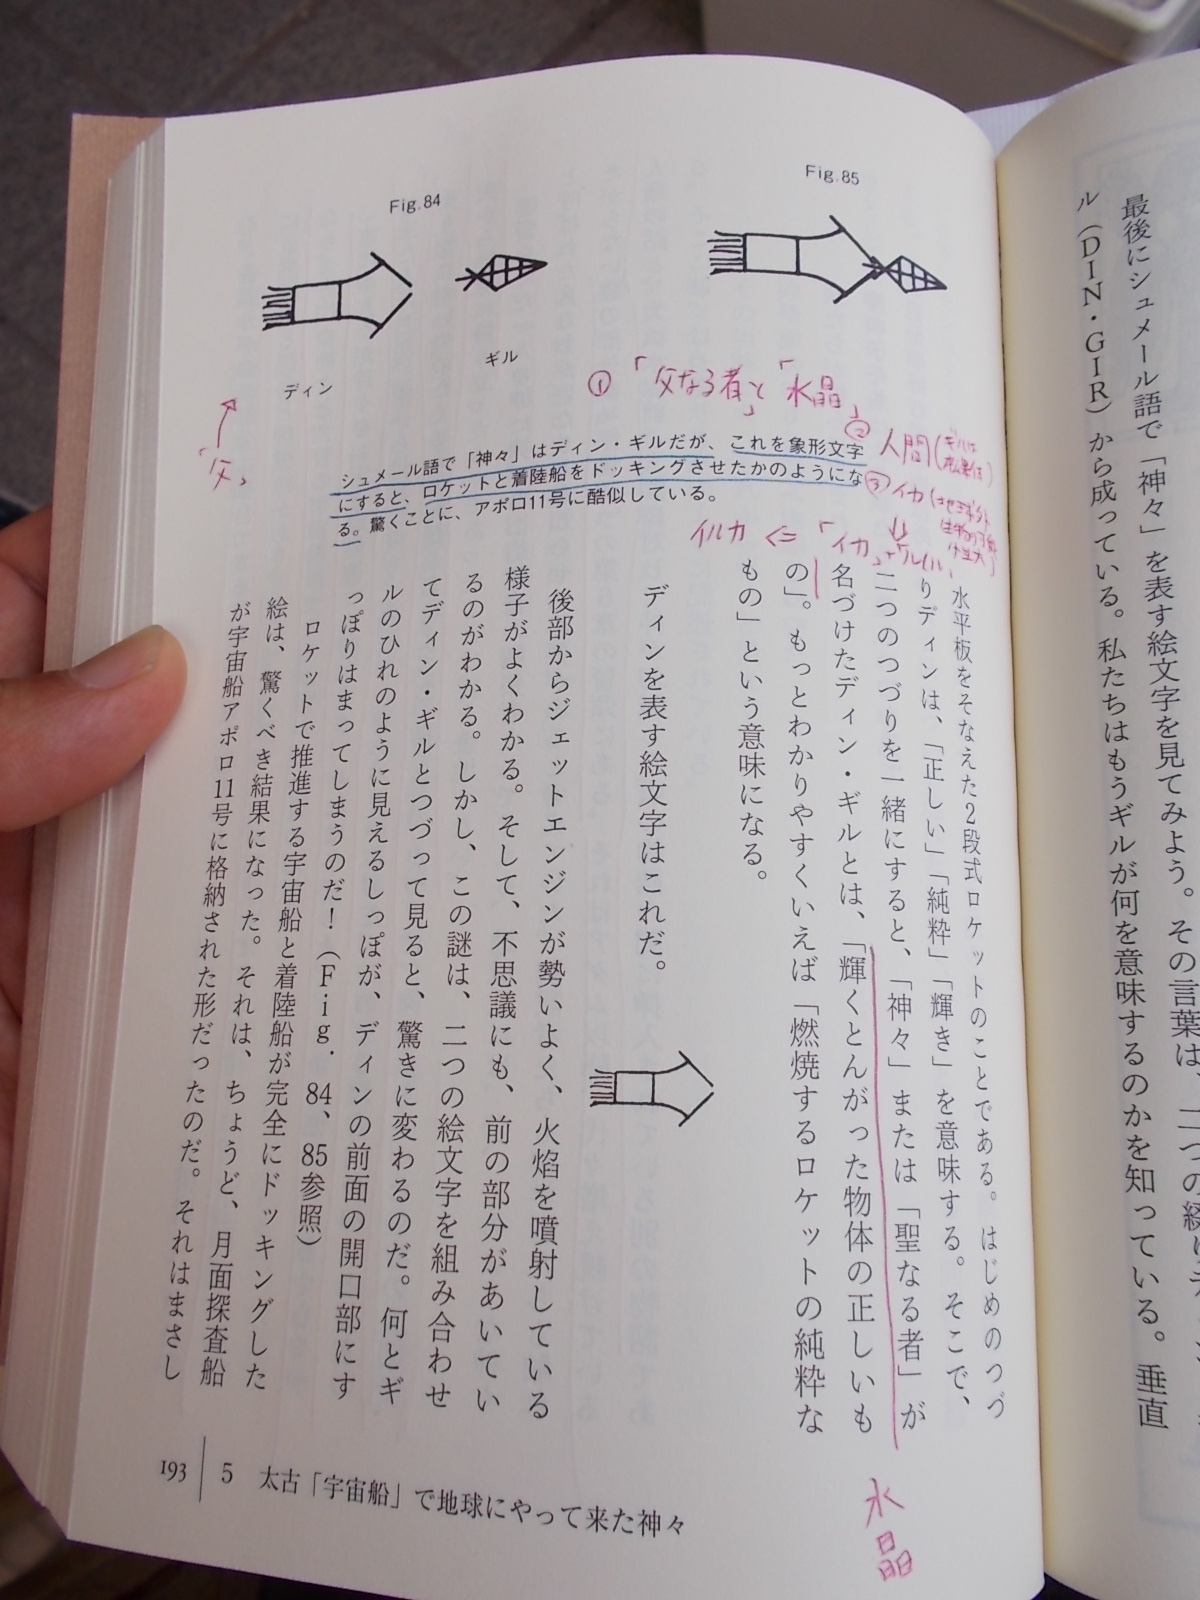 最後にシュメール語で「神々」を表す絵文字を見てみよう。その言葉は、二つの綴り
ル（DIN・GIR）から成っている。私たちはもうギルが何を意味するのかを知っている。垂直
Fig.85
Fig.84
ギル
ディン
「父」
①「父なる者」と「水晶」
② 人間（ギルは松果体）
③ イカ
イルカ <=「イカ」+
シュメール語で「神々」はディン・ギルだが、これを象形文字
にすると、ロケットと着陸船をドッキングさせたかのようにな
る。驚くことに、アポロ11号に酷似している。
水平板をそなえた2段式ロケットのことである。はじめのつづ
りディンは、「正しい」「純粋」「輝き」を意味する。そこで、
二つのつづりを一緒にすると、「神々」または「聖なる者」が
名づけたディン・ギルとは、「輝くとんがった物体の正しいも
の」。もっとわかりやすくいえば「燃焼するロケットの純粋な
もの」という意味になる。
水晶
ディンを表す絵文字はこれだ。
後部からジェットエンジンが勢いよく、火焰を噴射している
様子がよくわかる。そして、不思議にも、前の部分があいてい
るのがわかる。しかし、この謎は、二つの絵文字を組み合わせ
てディン・ギルとつづって見ると、驚きに変わるのだ。何とギ
ルのひれのように見えるしっぽが、ディンの前面の開口部にす
っぽりはまってしまうのだ！（Fig. 84、85参照）
ロケットで推進する宇宙船と着陸船が完全にドッキングした
絵は、驚くべき結果になった。それは、ちょうど、月面探査船
が宇宙船アポロ11号に格納された形だったのだ。それはまさし
193 5 太古「宇宙船」で地球にやって来た神々